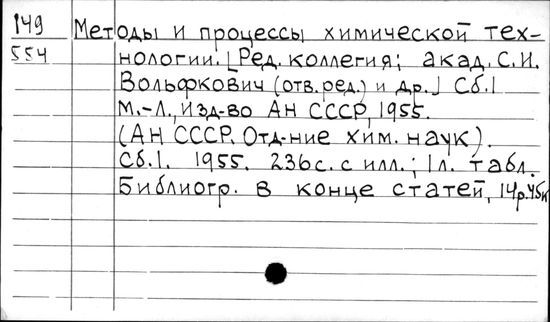 149 Методы и процессы химической тех-
554 нологии. [Ред. коллегия; акад. С.И.
Вольфкович (отв. ред.) и др.] Сб. 1
М.-Л., Изд-во Ан СССР, 1955.
(АН СССР. Отд-ние хим. наук).
Сб. 1. 1955. 236 с. с илл.; 1 л. табл.
Библиогр. в конце статей, 14р. 45к